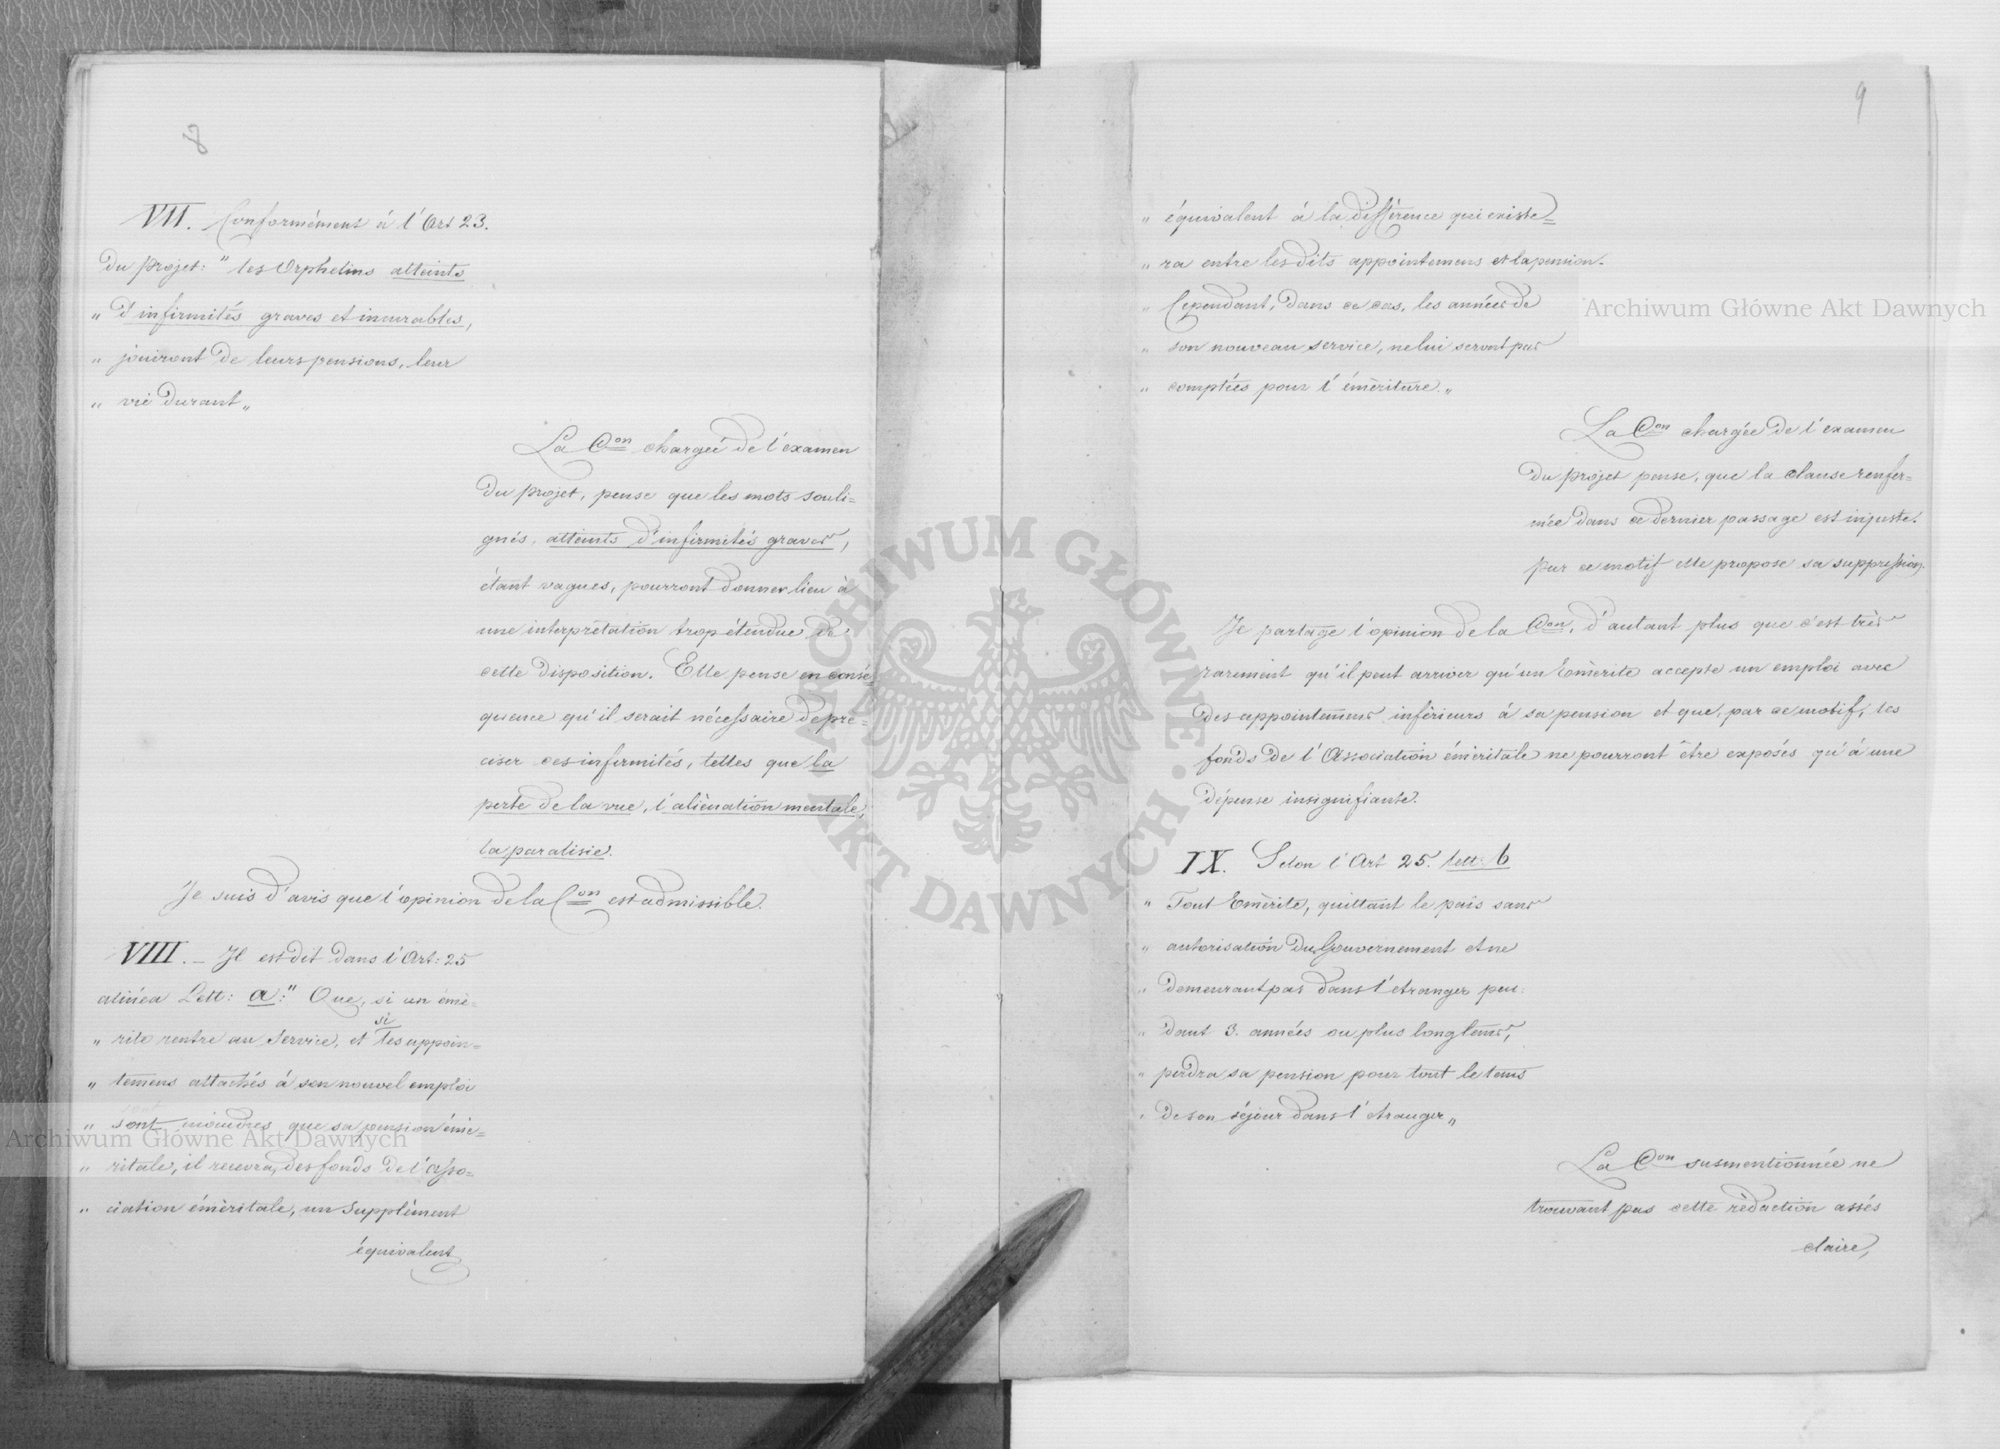 8
VII. Conformément à l'Art 23.
du projet: " les Orphelins atteints
" d'infirmités graves et incurables,
" jouiront de leurs pensions, leur
" vie durant "
La Con chargée de l'examen
du projet, pense que les mots souli=
gnés, atteints d'infirmités graves,
étant vagues, pourront donner lieu à
une interprétation trop étendue de
cette disposition. Elle pense en consé=
quence qu'il serait nécessaire de pré=
ciser ces infirmités, telles que la
perte de la vue, l'aliénation mentale,
la paralisie.
Je suis d'avis que l'opinion de la Con est admissible.
VIII. _ Il est dit dans l'Art: 25
alinéa Lett: a: " Que, si un émé=
" rite rentre au Service, et si les appoin=
" temens attachés à son nouvel emploi
" sont moindres que sa pension émé=
" ritale, il recevra, des fonds de l'asso=
" ciation éméritale, un Supplément
équivalent
9
" équivalent à la différence qui existe=
" ra entre les dits appointemens et la pension.
" Cependant, dans ce cas, les années de
" son nouveau service, ne lui seront pas
" comptées pour l'émèriture. "
La Con chargée de l'examen
du projet pense, que la clause renfer=
mée dans ce dernier passage est injuste;
par ce motif elle propose sa suppression.
Je partage l'opinion de la Con, d'autant plus que c'est très
rarement qu'il peut arriver qu'un Emèrite accepte un emploi avec
des appointemens inférieurs à sa pension et que, par ce motif, les
fonds de l'Association éméritale ne pourront être exposés qu'à une
dépense insignifiante.
IX. Selon l'Art 25. lett: b
" Tout Emèrite, quittant le païs sans
" autorisation du Gouvernement et ne
" demeurant pas dans l'etranger pen:
" dant 3. années ou plus longtems,
" perdra sa pension pour tout le tems
" de son séjour dans l'étranger "
La Con susmentionnée ne
trouvant pas cette rédaction assés
claire,
Archiwum Główne Akt Dawnych
Archiwum Główne Akt Dawnych
ARCHIWUM GŁÓWNE AKT DAWNYCH